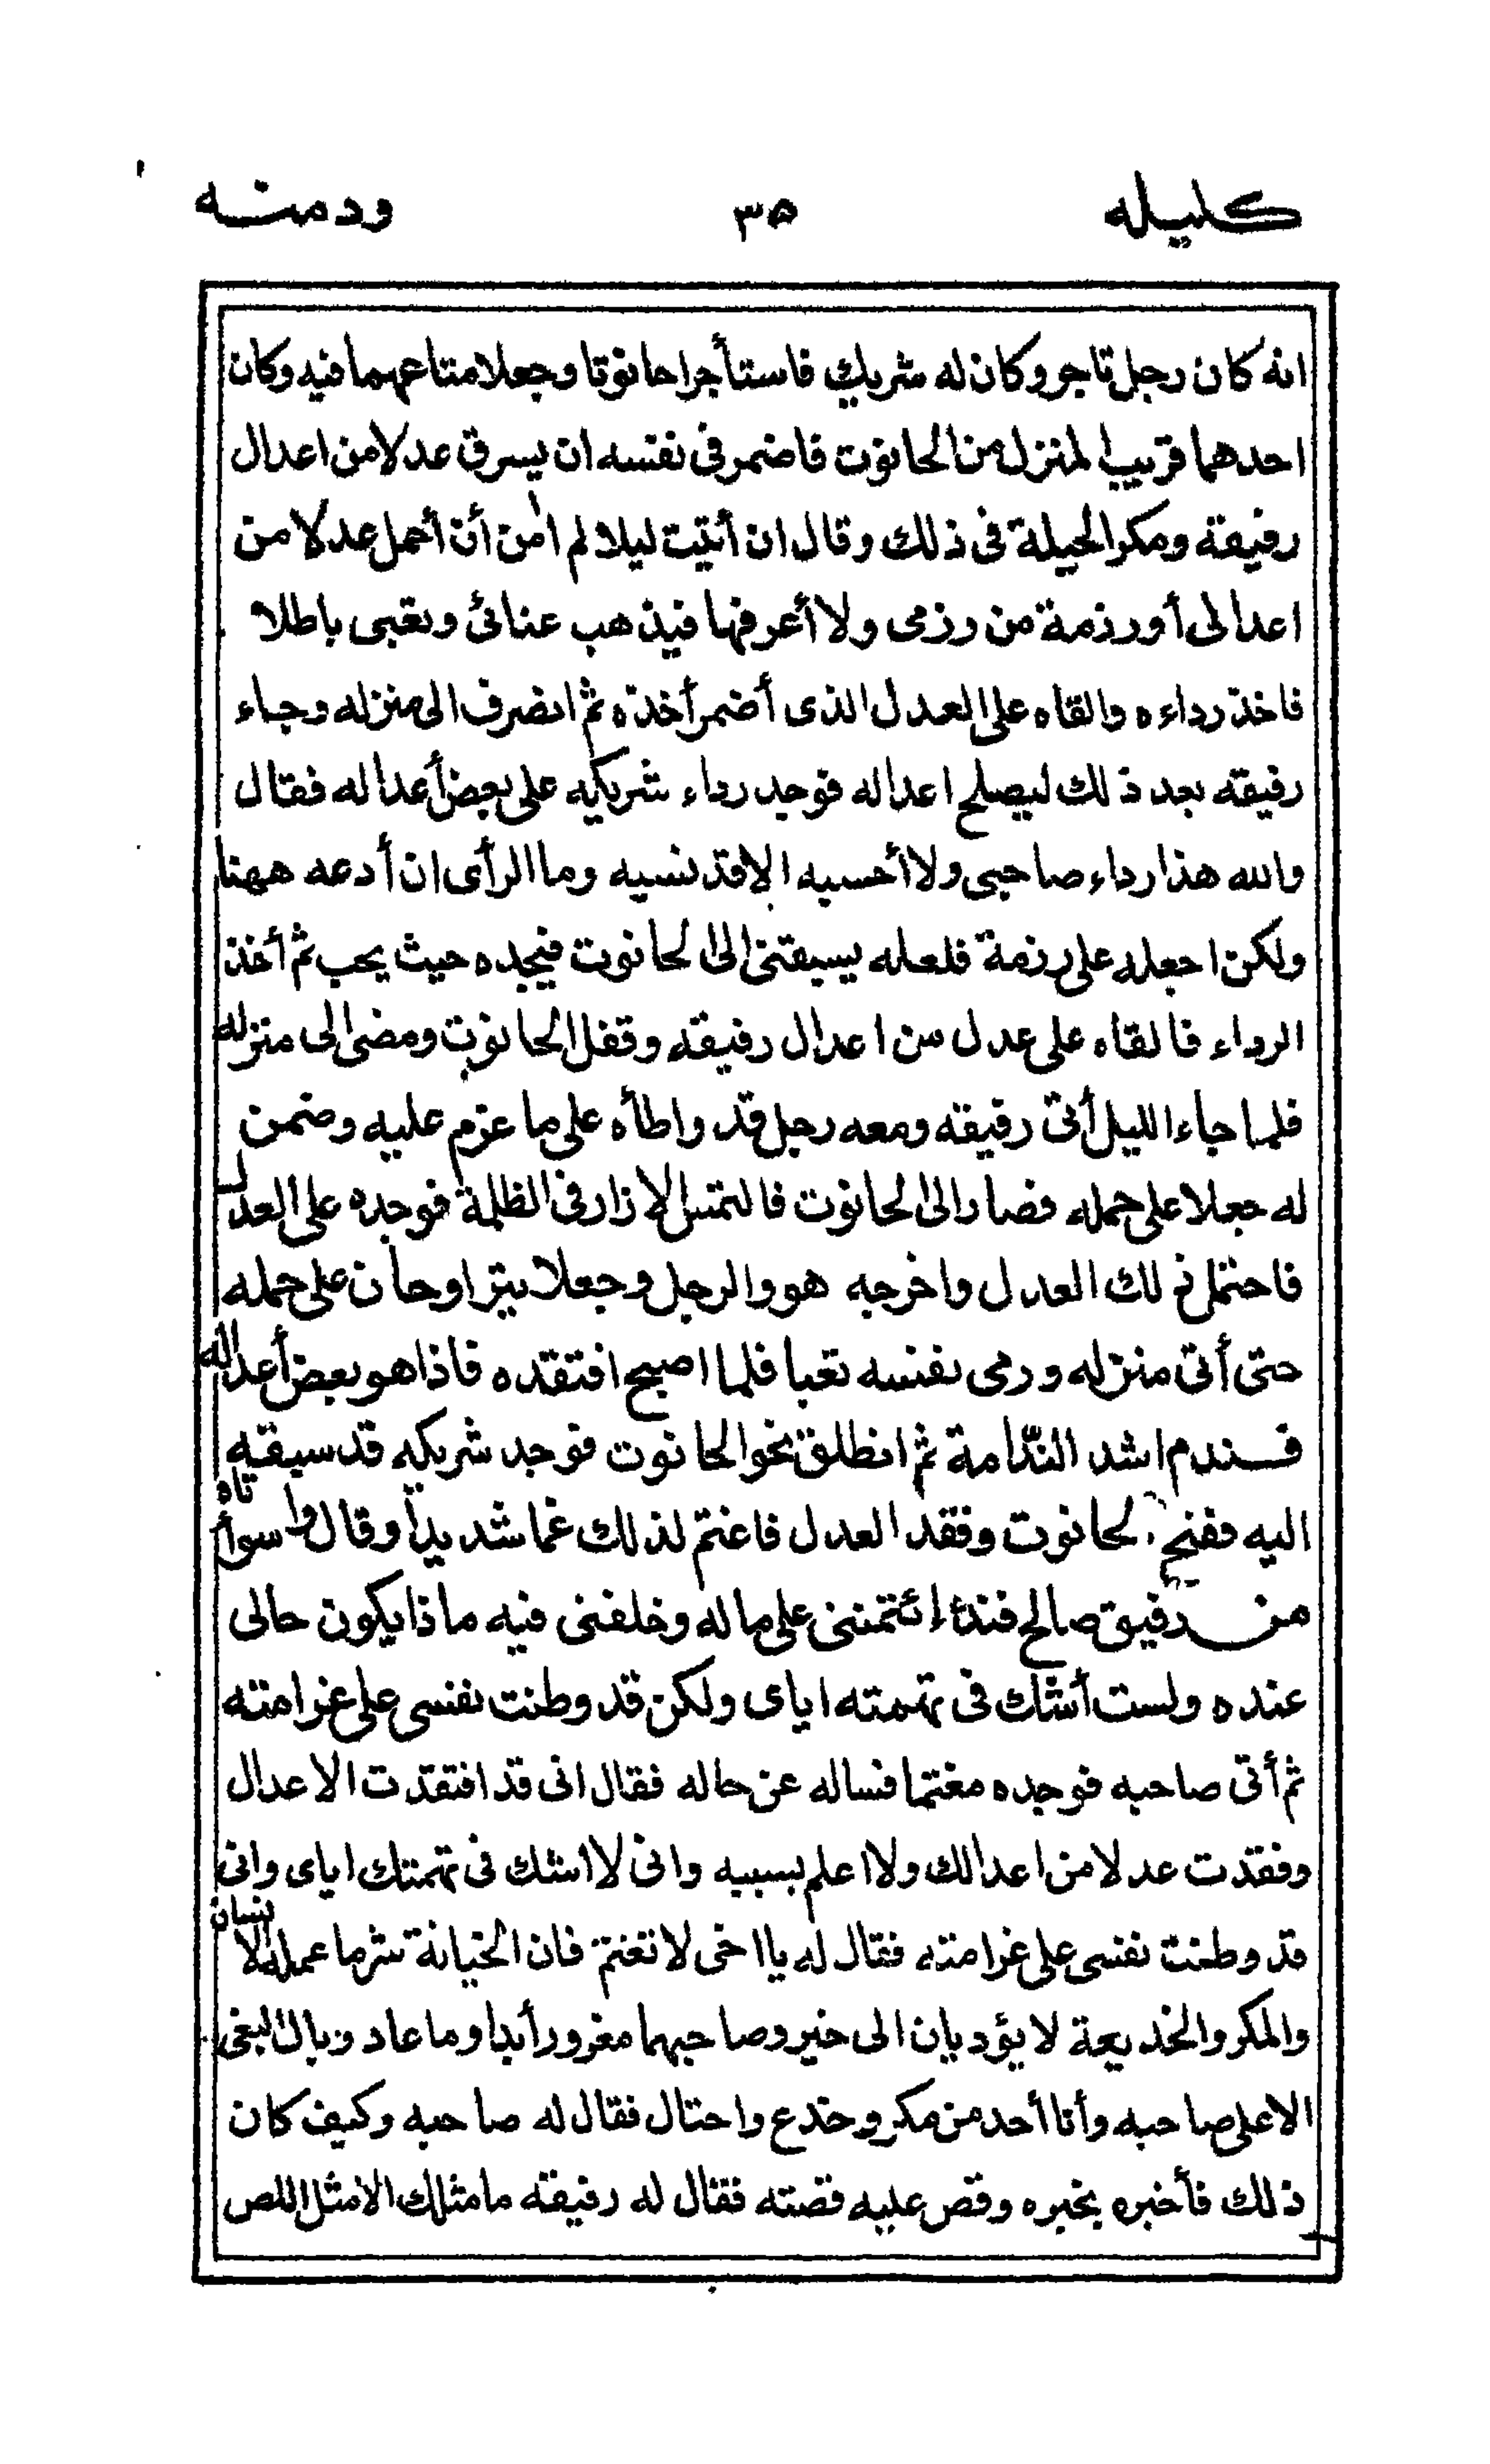 كليله ٣٥ ودمنه
انه كان رجل تاجر وكان له شريك فاستأجرا حانوتا وجعلا متاعهما فيه وكان
احدهما قريب المنزل من الحانوت فاضمر في نفسه ان يسرق عدلا من اعدال
رفيقه ومكر الحيلة في ذلك وقال ان أتيت ليلا لم امن أن أحمل عدلا من
اعدالى أو رزمة من رزمى ولا أعرفها فيذهب عنائى وتعبى باطلا
فاخذ رداءه والقاه على العدل الذى أضمر أخذه ثم انصرف الى منزله وجاء
رفيقه بعد ذلك ليصلح اعداله فوجد رداء شريكه على بعض أعداله فقال
والله هذا رداء صاحبى ولا أحسبه الا قد نسيه وما الرأى ان أدعه ههنا
ولكن اجعله على رزمة فلعله يسبقنى الى الحانوت فيجده حيث يحب ثم أخذ
الرداء فالقاه على عدل من اعدال رفيقه وقفل الحانوت ومضى الى منزله
فلما جاء الليل أتى رفيقه ومعه رجل قد واطأه على ما عزم عليه وضمن
له جعلا على حمله فصار الى الحانوت فالتمس الازار في الظلمة فوجده على العدل
فاحتمل ذلك العدل واخرجه هو والرجل وجعلا يتراوحان على حمله
حتى أتى منزله ورمى بنفسه تعبا فلما اصبح افتقده فاذا هو بعض أعداله
فندم اشد النّدامة ثم انطلق نحو الحانوت فوجد شريكه قد سبقه
اليه ففتح الحانوت وفقد العدل فاغتم لذلك غما شديدا وقال وا سوأتاه
من رفيق صالح قد إئتمننى على ماله وخلفنى فيه ماذا يكون حالى
عنده ولست أشك في تهمته اياى ولكن قد وطنت نفسى على غرامته
ثم أتى صاحبه فوجده مغتما فساله عن حاله فقال انى قد افتقدت الاعدال
وفقدت عدلا من اعدالك ولا اعلم بسببه وانى لا اشك في تهمتك اياى وانى
قد وطنت نفسى على غرامته فقال له يا اخى لا تغتم فان الخيانة شر ما عمله الانسان
والمكر والخديعة لا يؤديان الى خير وصاحبهما مغرور أبدا وما عاد وبال البغى
الا على صاحبه وأنا أحد من مكر وخدع واحتال فقال له صاحبه وكيف كان
ذلك فأخبره بخبره وقص عليه قصته فقال له رفيقه ما مثلك الا مثل اللص